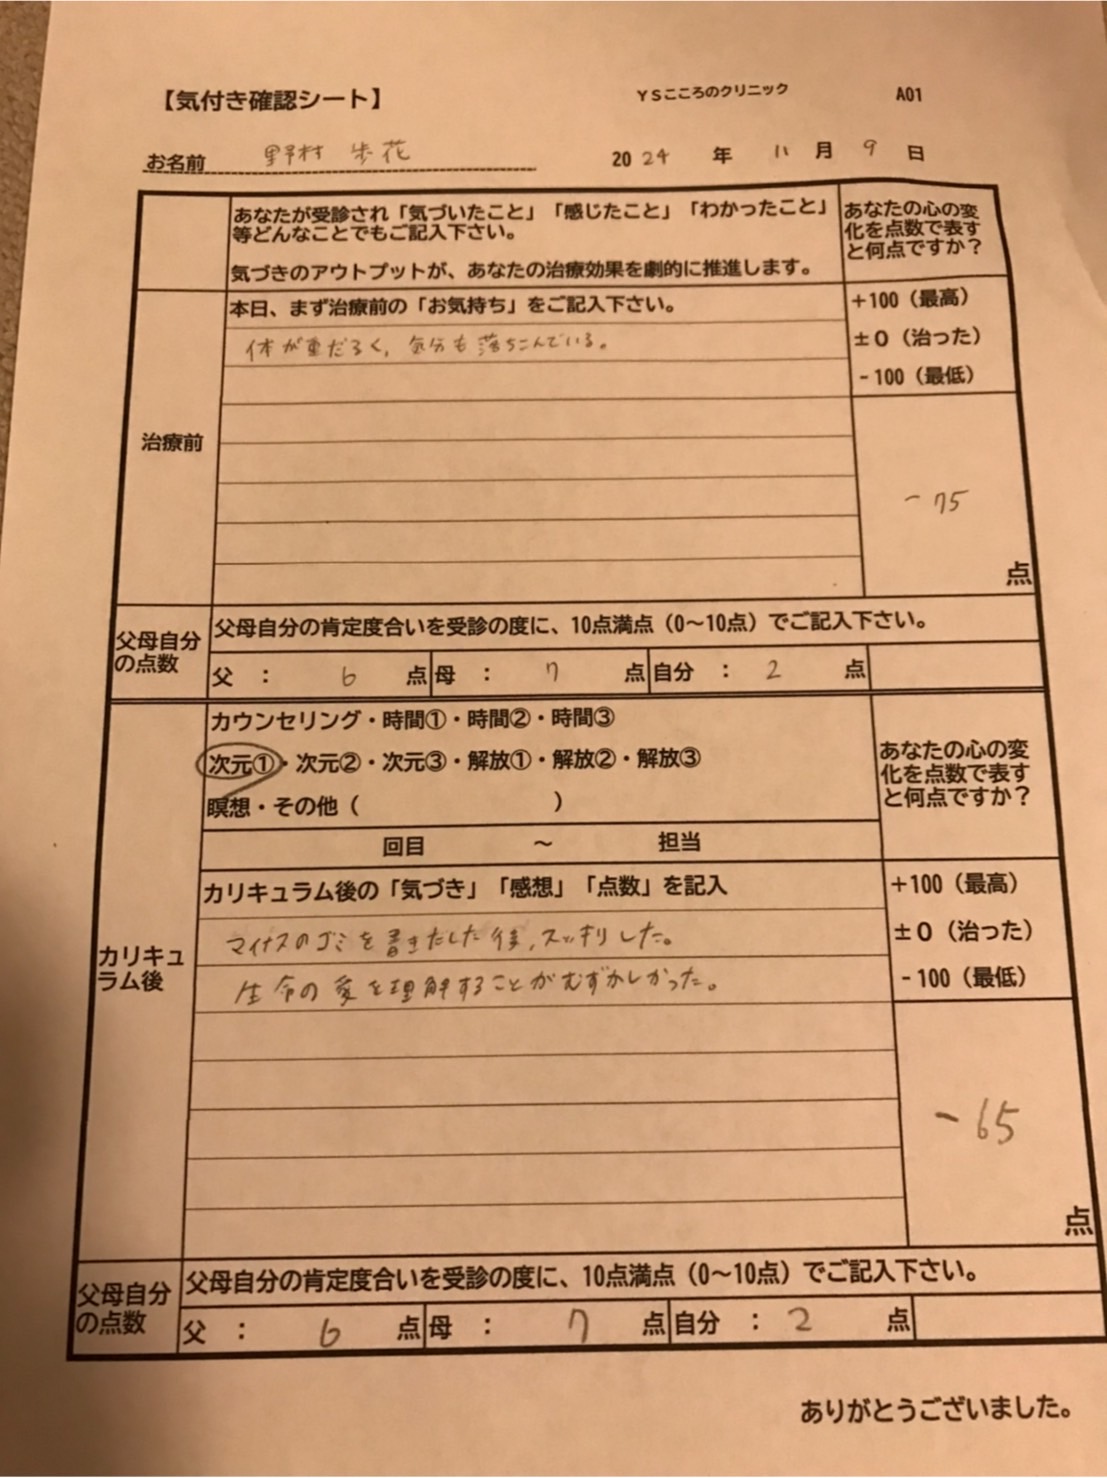 【気付き確認シート】
YSこころのクリニック
A01
お名前 野村 歩花
2024年 11月 9日
あなたが受診され「気づいたこと」「感じたこと」「わかったこと」
等どんなことでもご記入下さい。
気づきのアウトプットが、あなたの治療効果を劇的に推進します。
あなたの心の変
化を点数で表す
と何点ですか？
治療前
本日、まず治療前の「お気持ち」をご記入下さい。
体が重だるく、気分も落ちこんでいる。
+100（最高）
±0（治った）
-100（最低）
-75
点
父母自分
の点数
父母自分の肯定度合いを受診の度に、10点満点（0〜10点）でご記入下さい。
父 ： 6 点 母 ： 7 点 自分 ： 2 点
カリキュ
ラム後
カウンセリング・時間①・時間②・時間③
次元①・次元②・次元③・解放①・解放②・解放③
瞑想・その他（ ）
回目 〜 担当
あなたの心の変
化を点数で表す
と何点ですか？
カリキュラム後の「気づき」「感想」「点数」を記入
マイナスのゴミを書きだした後、スッキリした。
生命の家を理解することがむずかしかった。
+100（最高）
±0（治った）
-100（最低）
-65
点
父母自分
の点数
父母自分の肯定度合いを受診の度に、10点満点（0〜10点）でご記入下さい。
父 ： 6 点 母 ： 7 点 自分 ： 2 点
ありがとうございました。